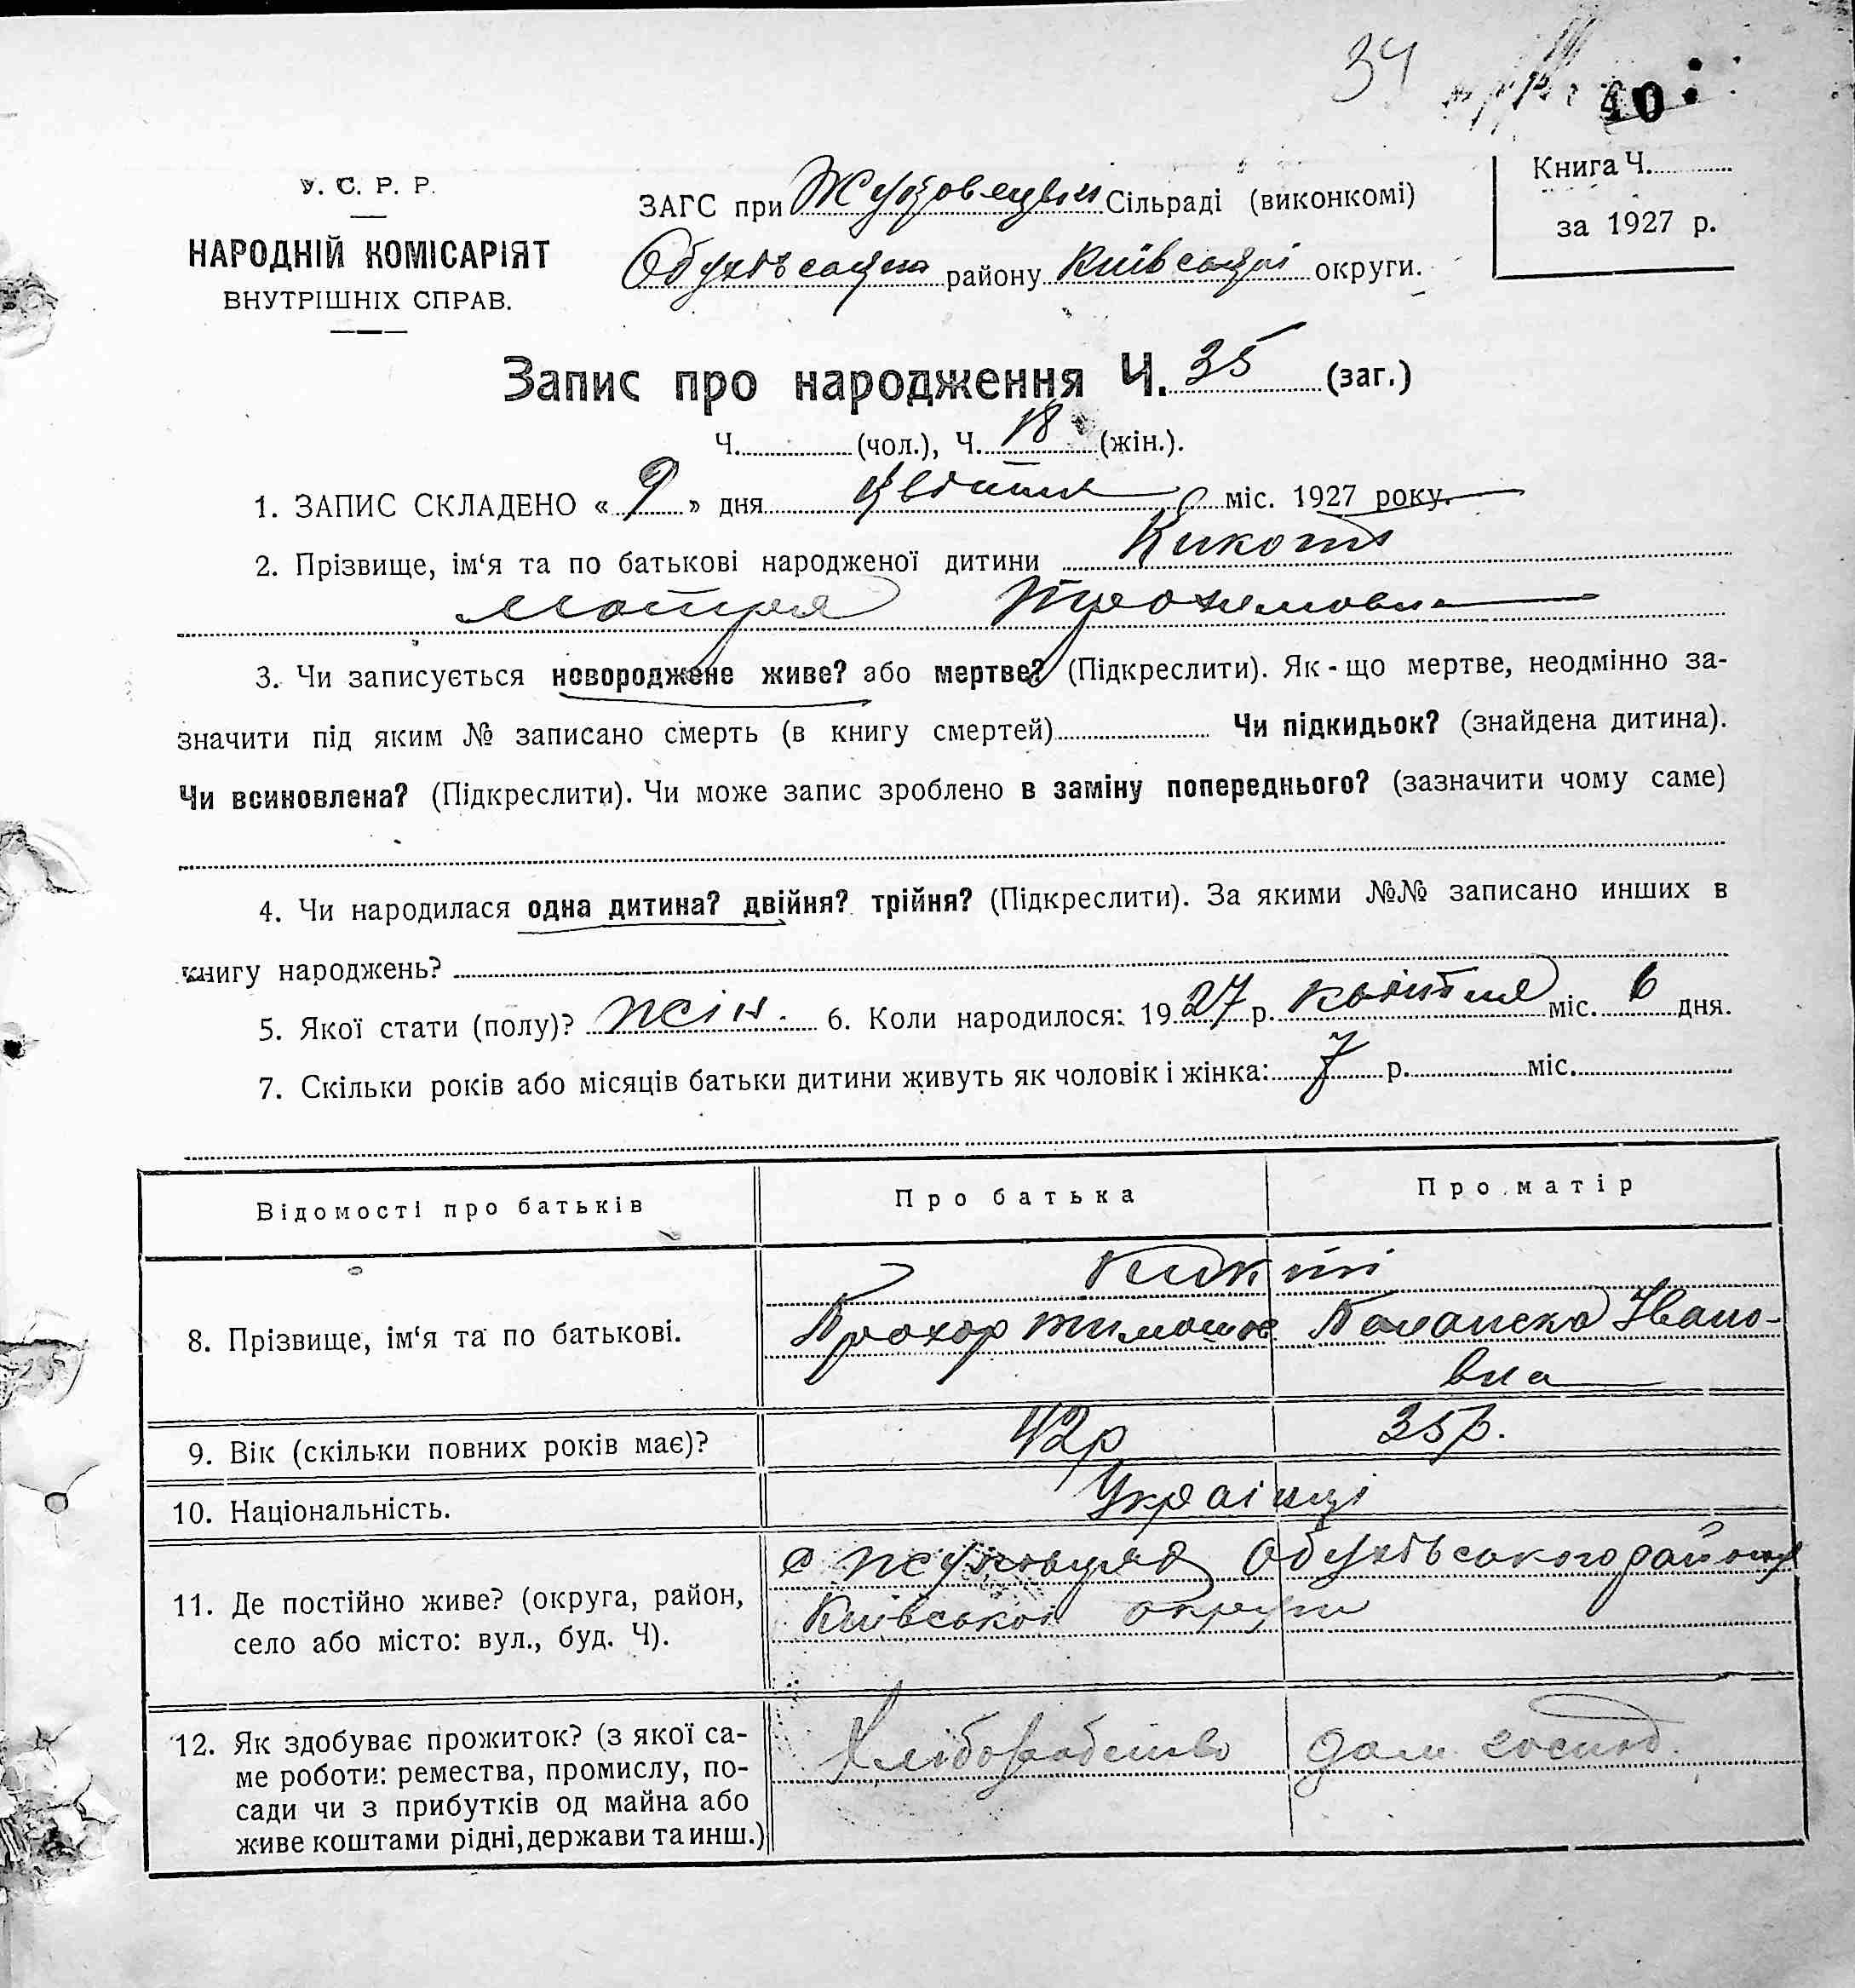 34
40
У. С. Р. Р.
НАРОДНІЙ КОМІСАРІЯТ
ВНУТРІШНІХ СПРАВ.
ЗАГС при Сільраді (виконкомі)
району Київської округи.
Книга Ч.
за 1927 р.
Запис про народження Ч. 35 (заг.)
Ч. (чол.), Ч. 18 (жін.).
1. ЗАПИС СКЛАДЕНО « 9 » дня квітня міс. 1927 року.
2. Прізвище, ім‘я та по батькові народженої дитини Кикоть
Мотря
3. Чи записується новороджене живе? або мертве? (Підкреслити). Як-що мертве, неодмінно за-
значити під яким № записано смерть (в книгу смертей) Чи підкидьок? (знайдена дитина).
Чи всиновлена? (Підкреслити). Чи може запис зроблено в заміну попереднього? (зазначити чому саме)
4. Чи народилася одна дитина? двійня? трійня? (Підкреслити). За якими №№ записано инших в
книгу народжень?
5. Якої стати (полу)? жін. 6. Коли народилося: 1927 р. квітня міс. 6 дня.
7. Скільки років або місяців батьки дитини живуть як чоловік і жінка: 7 р. міс.
Відомості про батьків Про батька Про матір
8. Прізвище, ім‘я та по батькові.
Прохор Тимошов Палажка Івано-
вна
9. Вік (скільки повних років має)? 42р 35р.
10. Національність. Українці
11. Де постійно живе? (округа, район,
село або місто: вул., буд. Ч).
с Жуковця Обухівського району
Київської округи
12. Як здобуває прожиток? (з якої са-
ме роботи: ремества, промислу, по-
сади чи з прибутків од майна або
живе коштами рідні, держави та инш.)
Хліборобство дом. господ.